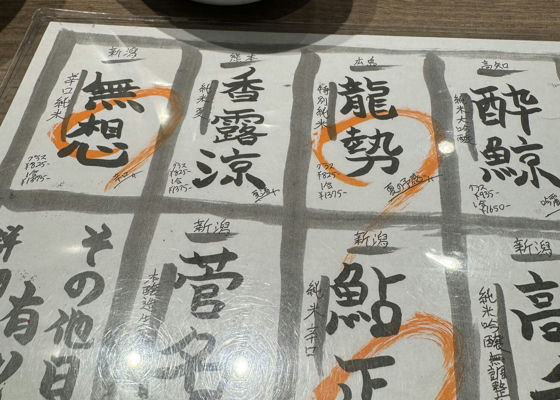 新潟
無想
辛口純米
グラス
¥825-
1合
¥1375-
辛口
熊本
香露涼
純米夏
グラス
¥825-
1合
¥1375-
広島
龍勢
特別純米
グラス
¥825-
1合
¥1375-
夏の予感
高知
酔鯨
純米大吟醸
グラス
¥935-
1合
¥1650-
その他日
新潟
菅名
本醸造生
新潟
鮎正
純米辛口
新潟
高
純米吟醸無調整